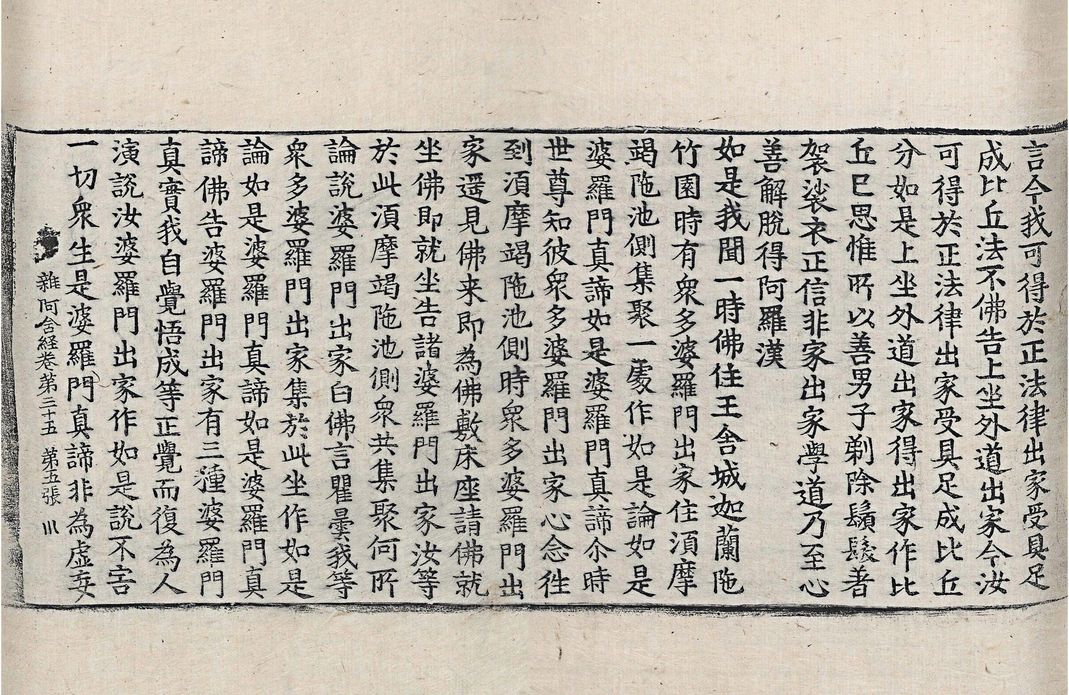 言令我可得於正法律出家受具足
成比丘法不佛告上坐外道出家今汝
可得於正法律出家受具足成比丘
分如是上坐外道出家得出家作比
丘已思惟所以善男子剃除鬚髮著
袈裟衣正信非家出家學道乃至心
善解脫得阿羅漢
如是我聞一時佛住王舍城迦蘭陁
竹園時有衆多婆羅門出家住湏摩
竭陁池側集聚一處作如是論如是
婆羅門真諦如是婆羅門真諦尒時
世尊知彼衆多婆羅門出家心念徃
到湏摩竭陁池側時衆多婆羅門出
家遥見佛来即為佛敷床座請佛就
坐佛即就坐告諸婆羅門出家汝等
於此湏摩竭陁池側衆共集聚何所
論說婆羅門出家白佛言瞿曇我等
衆多婆羅門出家集於此坐作如是
論如是婆羅門真諦如是婆羅門真
諦佛告婆羅門出家有三種婆羅門
真實我自覺悟成等正覺而復為人
演說汝婆羅門出家作如是說不害
一切衆生是婆羅門真諦非為虛妄
雜阿含経卷第三十五 第五張